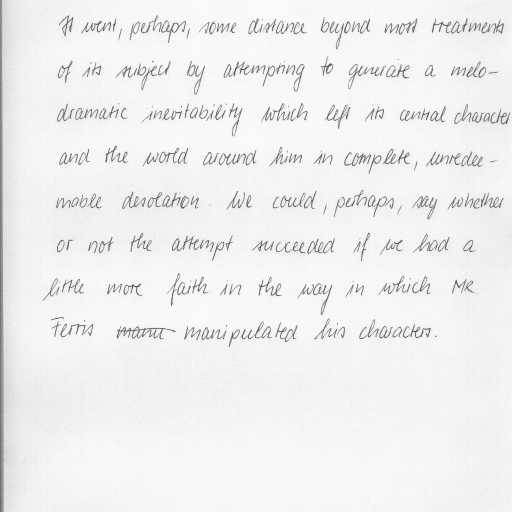 It went, perhaps, some distance beyond most treatments
of its subject by attempting to generate a melo-
dramatic inevitability which left its central character
and the world around him in complete, unredee-
mable desolation. We could, perhaps, say whether
or not the attempt succeeded if we had a
little more faith in the way in which Mr.
Ferris manu manipulated his characters.